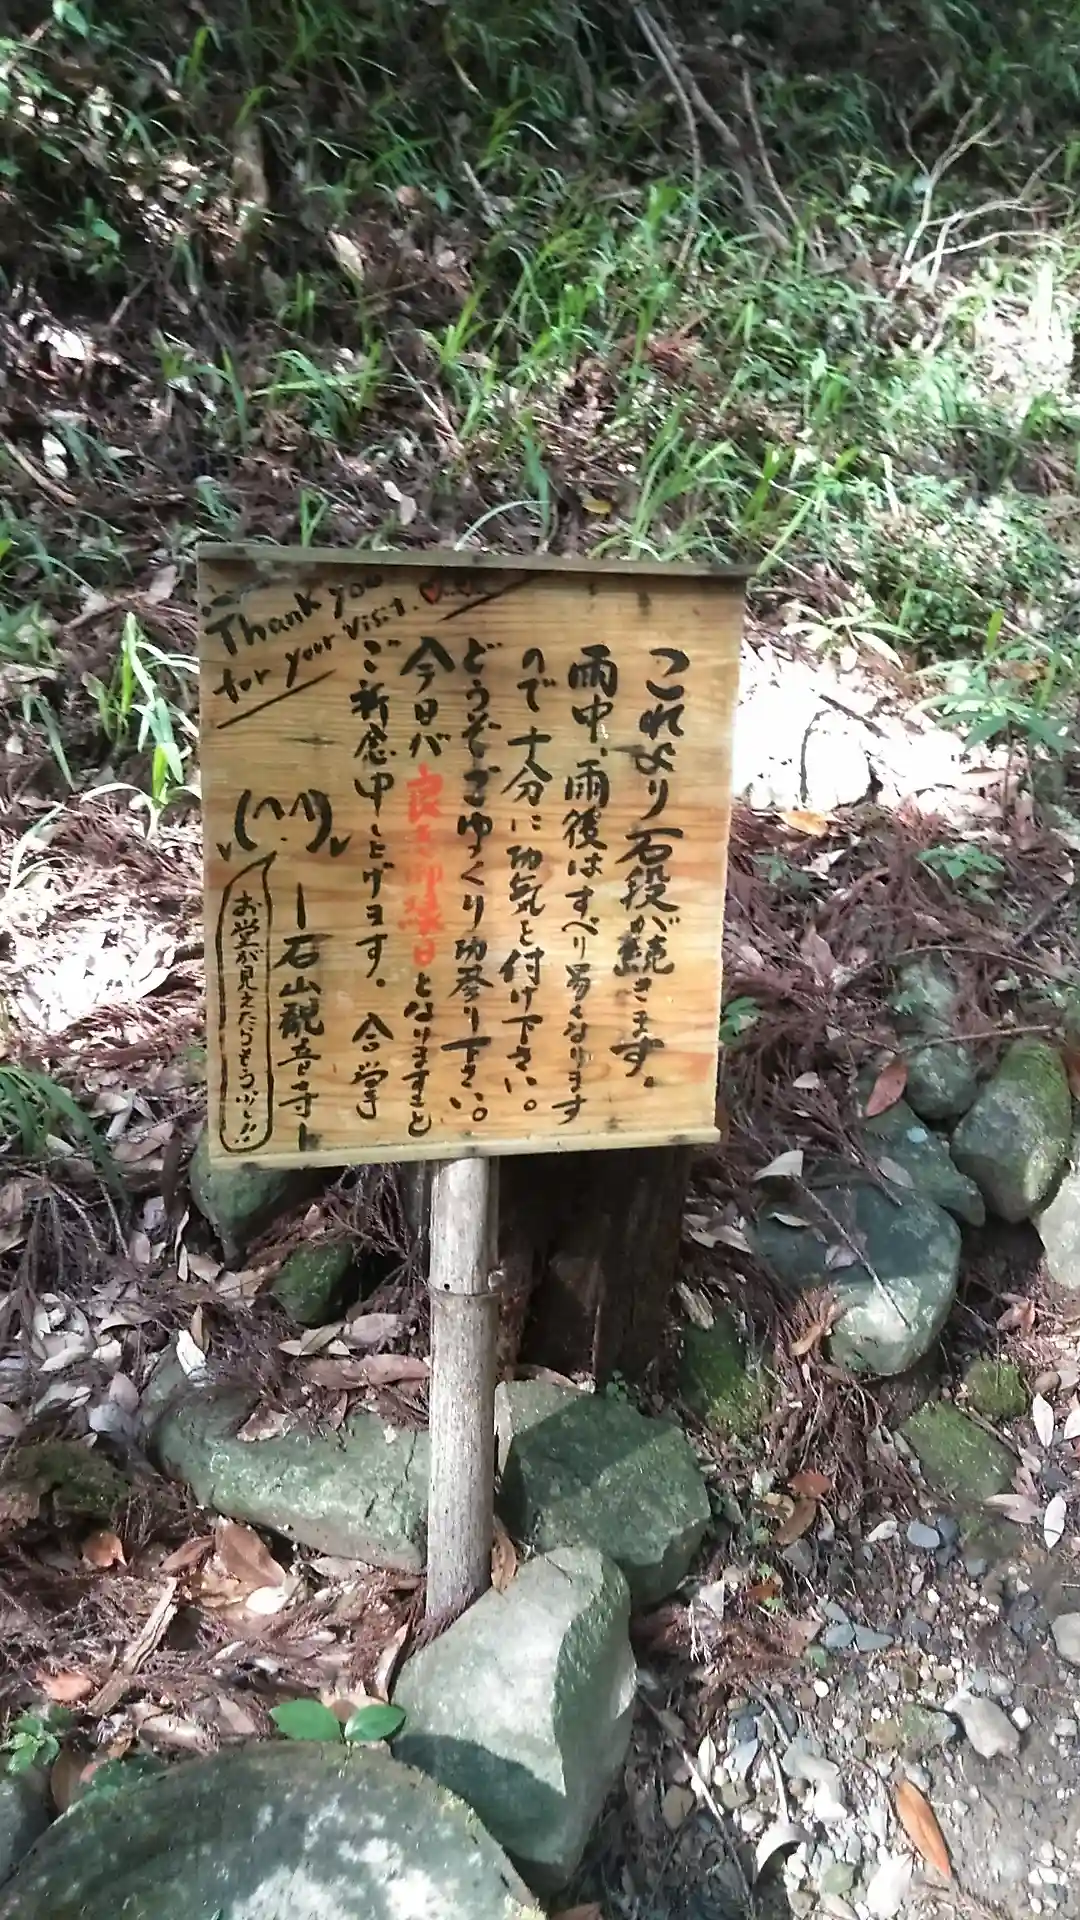 これより石段が続きます。
雨中、雨後はすべり易くなります
ので十分に功気を付け下さい。
どうぞごゆっくり功参り下さい。
今日が良き御縁日となりますこと
ご祈念申し上げます。 合掌
Thank you
for your visit.♡
(^.^)
ー石山観音寺ー
お堂が見えたらもう少し!!